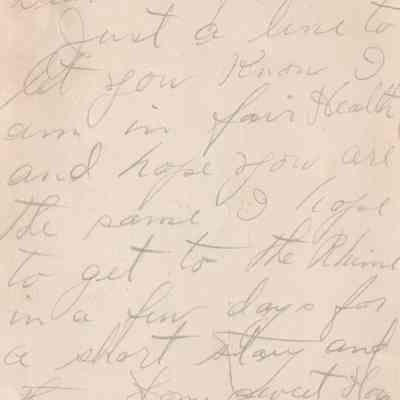 Just a line to
let you Know I
am in fair Health
and hope you are
the same I hope
to get to the Rhine
in a few days for
a short stay and
Home sweet Hom